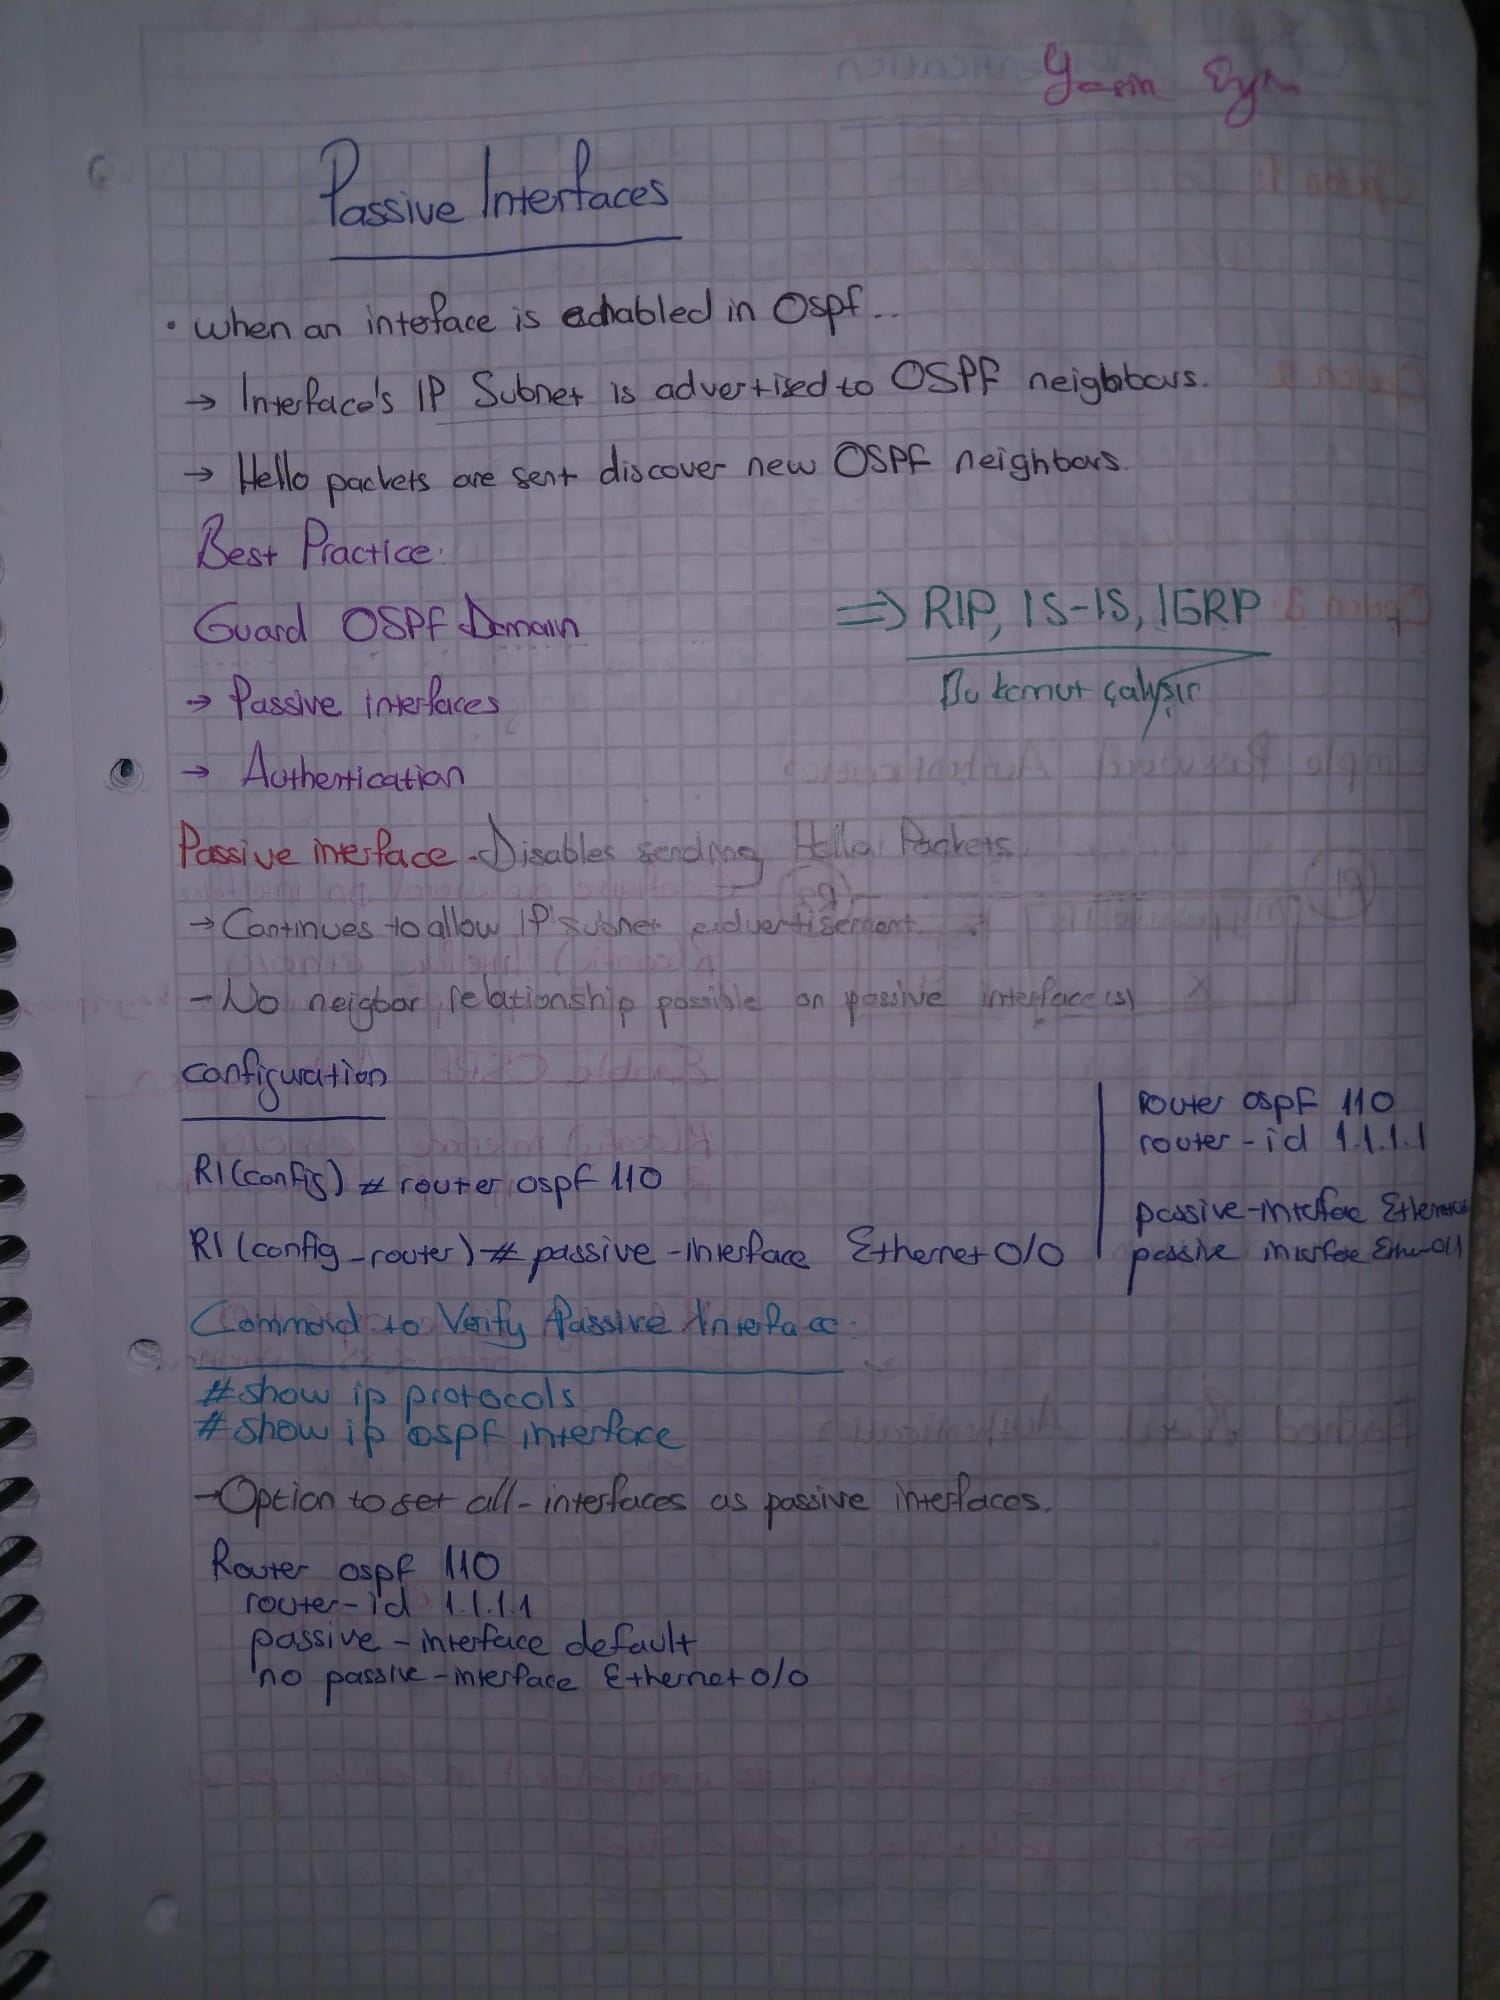 Passive Interfaces
• when an interface is enabled in Ospf..
→ Interface's IP Subnet is advertised to OSPF neigbbors.
→ Hello packets are sent discover new OSPF neighbors.
Best Practice:
Guard OSPF Domain
⇒ RIP, IS-IS, IGRP
Bu komut çalışır
→ Passive interfaces
→ Authentication
Passive interface - Disables sending Hello Packets
→ Continues to allow IP subnet advertisement.
- No neigbor relationship possible on passive interface(s)
configuration
R1(config) # router ospf 110
R1(config-router) # passive-interface Ethernet 0/0
router ospf 110
router-id 1.1.1.1
passive-interfac
passive interfac
Command to Verify Passive Interface:
#show ip protocols
#show ip ospf interface
→ Option to set all-interfaces as passive interfaces.
Router ospf 110
router-id 1.1.1.1
passive-interface default
no passive-interface Ethernet 0/0